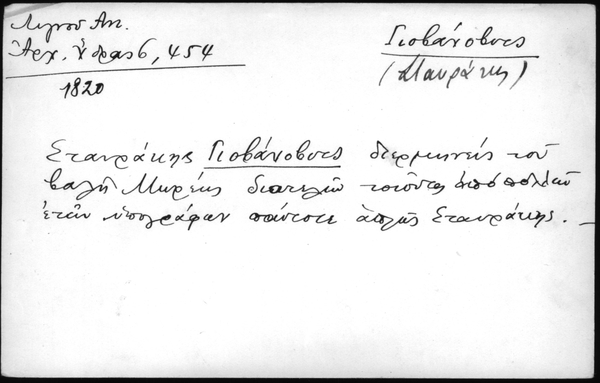 Λιγνοῦ Ἀν.
Ἀρχ. Ὕδρας 6, 454
1820
Γιοβάνοβιτς
(Σταυράκης)
Σταυράκης Γιοβάνοβιτς διερμηνεὺς τοῦ
βαλῆ Μωρέως διατελῶν τοιοῦτος ἀπὸ πολλῶν
ἐτῶν ὑπογράφων πάντοτε ἁπλῶς Σταυράκης. _